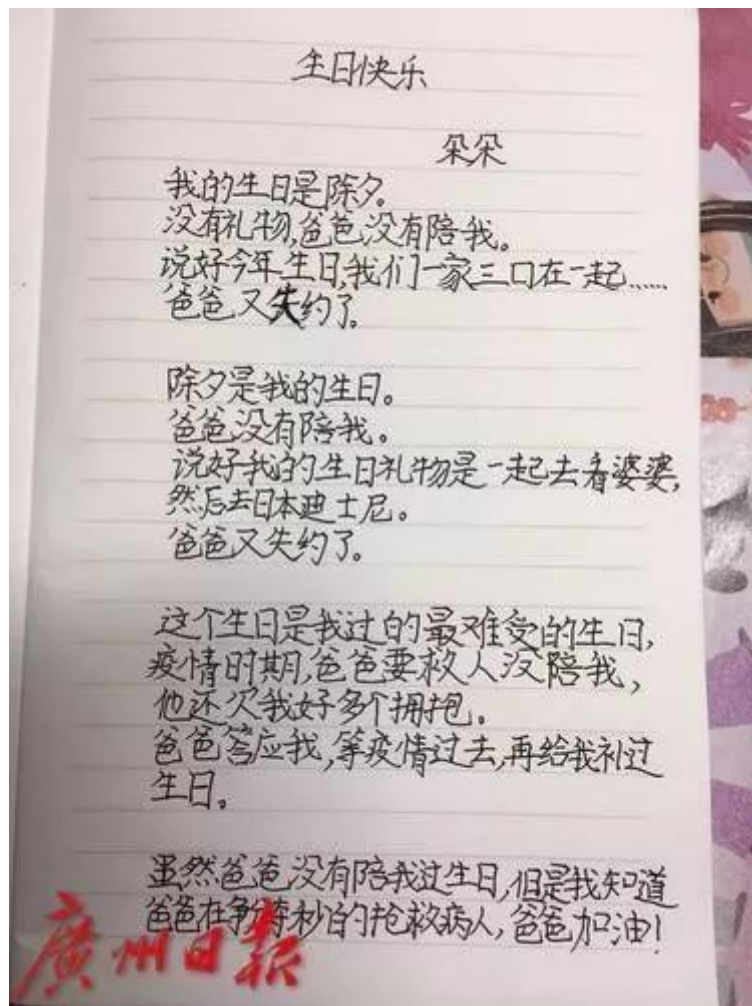 生日快乐
朵朵
我的生日是除夕。
没有礼物,爸爸没有陪我。
说好今年生日,我们一家三口在一起……
爸爸又失约了。
除夕是我的生日。
爸爸没有陪我。
说好我的生日礼物是一起去看婆婆,
然后去日本迪士尼。
爸爸又失约了。
这个生日是我过的最难受的生日,
疫情时期,爸爸要救人没陪我,
他还欠我好多个拥抱。
爸爸答应我,等疫情过去,再给我补过
生日。
虽然爸爸没有陪我过生日,但是我知道
爸爸在争分夺秒的抢救病人,爸爸加油!
廣州日報